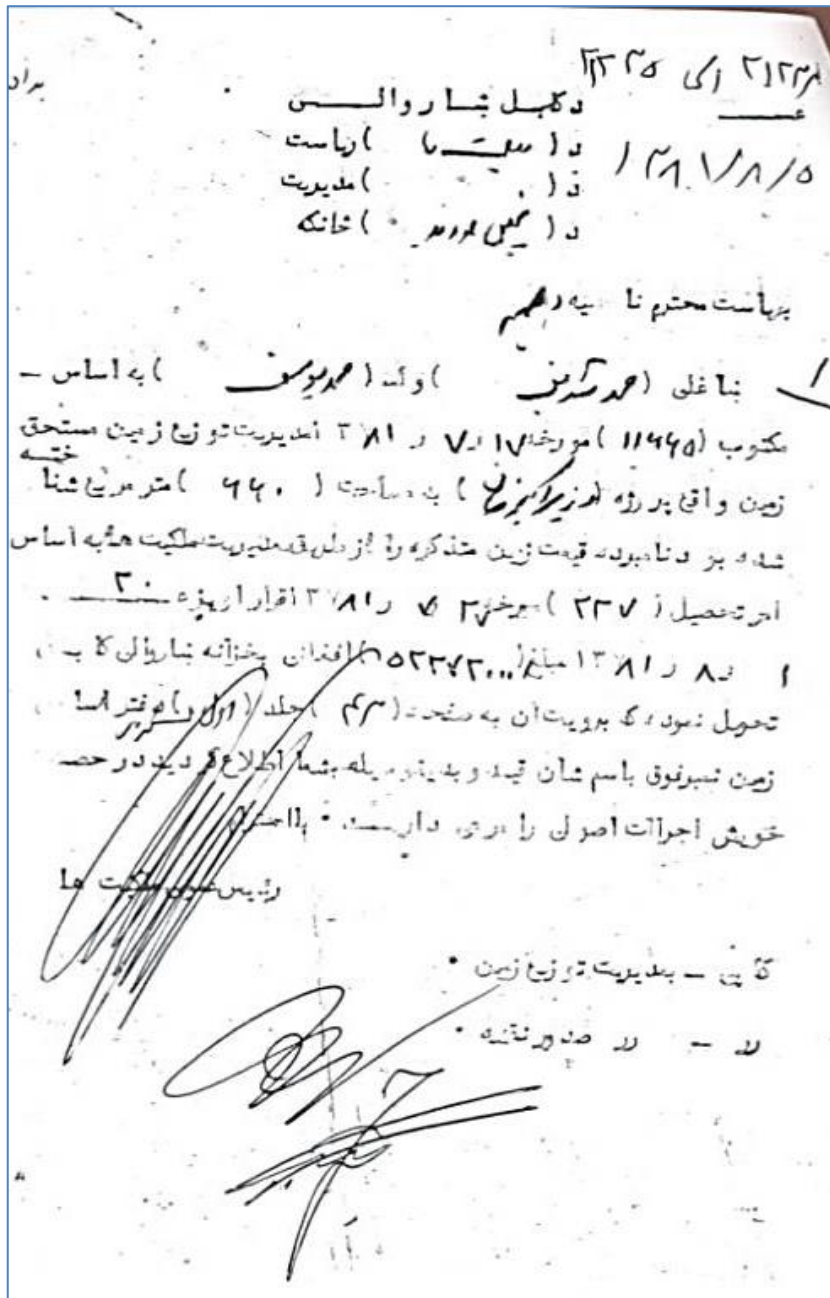 ۲۱۲۳ الی
۱۳۸۱/۸/۵
د کابل ښاروالـــی
د ( ملکیت ها ) ریاست
د ( ) مدیریت
د ( ) څانګه
بریاست محترم ناحیه دهم
ښاغلی ( ) ولد ( محمد یوسف ) به اساس –
مکتوب (۱۱۴۴۵) مورخه ۱۷ ر۷ ر ۱۳۸۱ مدیریت توزیع زمین مستحق
زمین واقع پروژه (وزیر اکبرخان) به مساحت ( ۴۴۰ ) متر مربع شنا
خته
شده بر دنامبوده قیمت زمین متذکره را از طریق مدیریت ملکیت ها به اساس
امر تحصیل ( ۲۲۷ ) مورخه ر ۱۳۸۱ اقرار اویزه ۲۰
ر ۸ ر ۱۳۸۱ مبلغ افغانی بخزانه ښاروالی کابل
تحویل نموده که برویت آن به صفحه (۴۳) جلد (اول) دفتر اساس
زمین نمبر فوق باسم شان قید و بدینوسیله بشما اطلاع گردید در حصه
خویش اجراات اصولی را دارند • بااحترام
رئیس ملکیت ها
کاپی – بمدیریت توزیع زمین •
رر – رر •